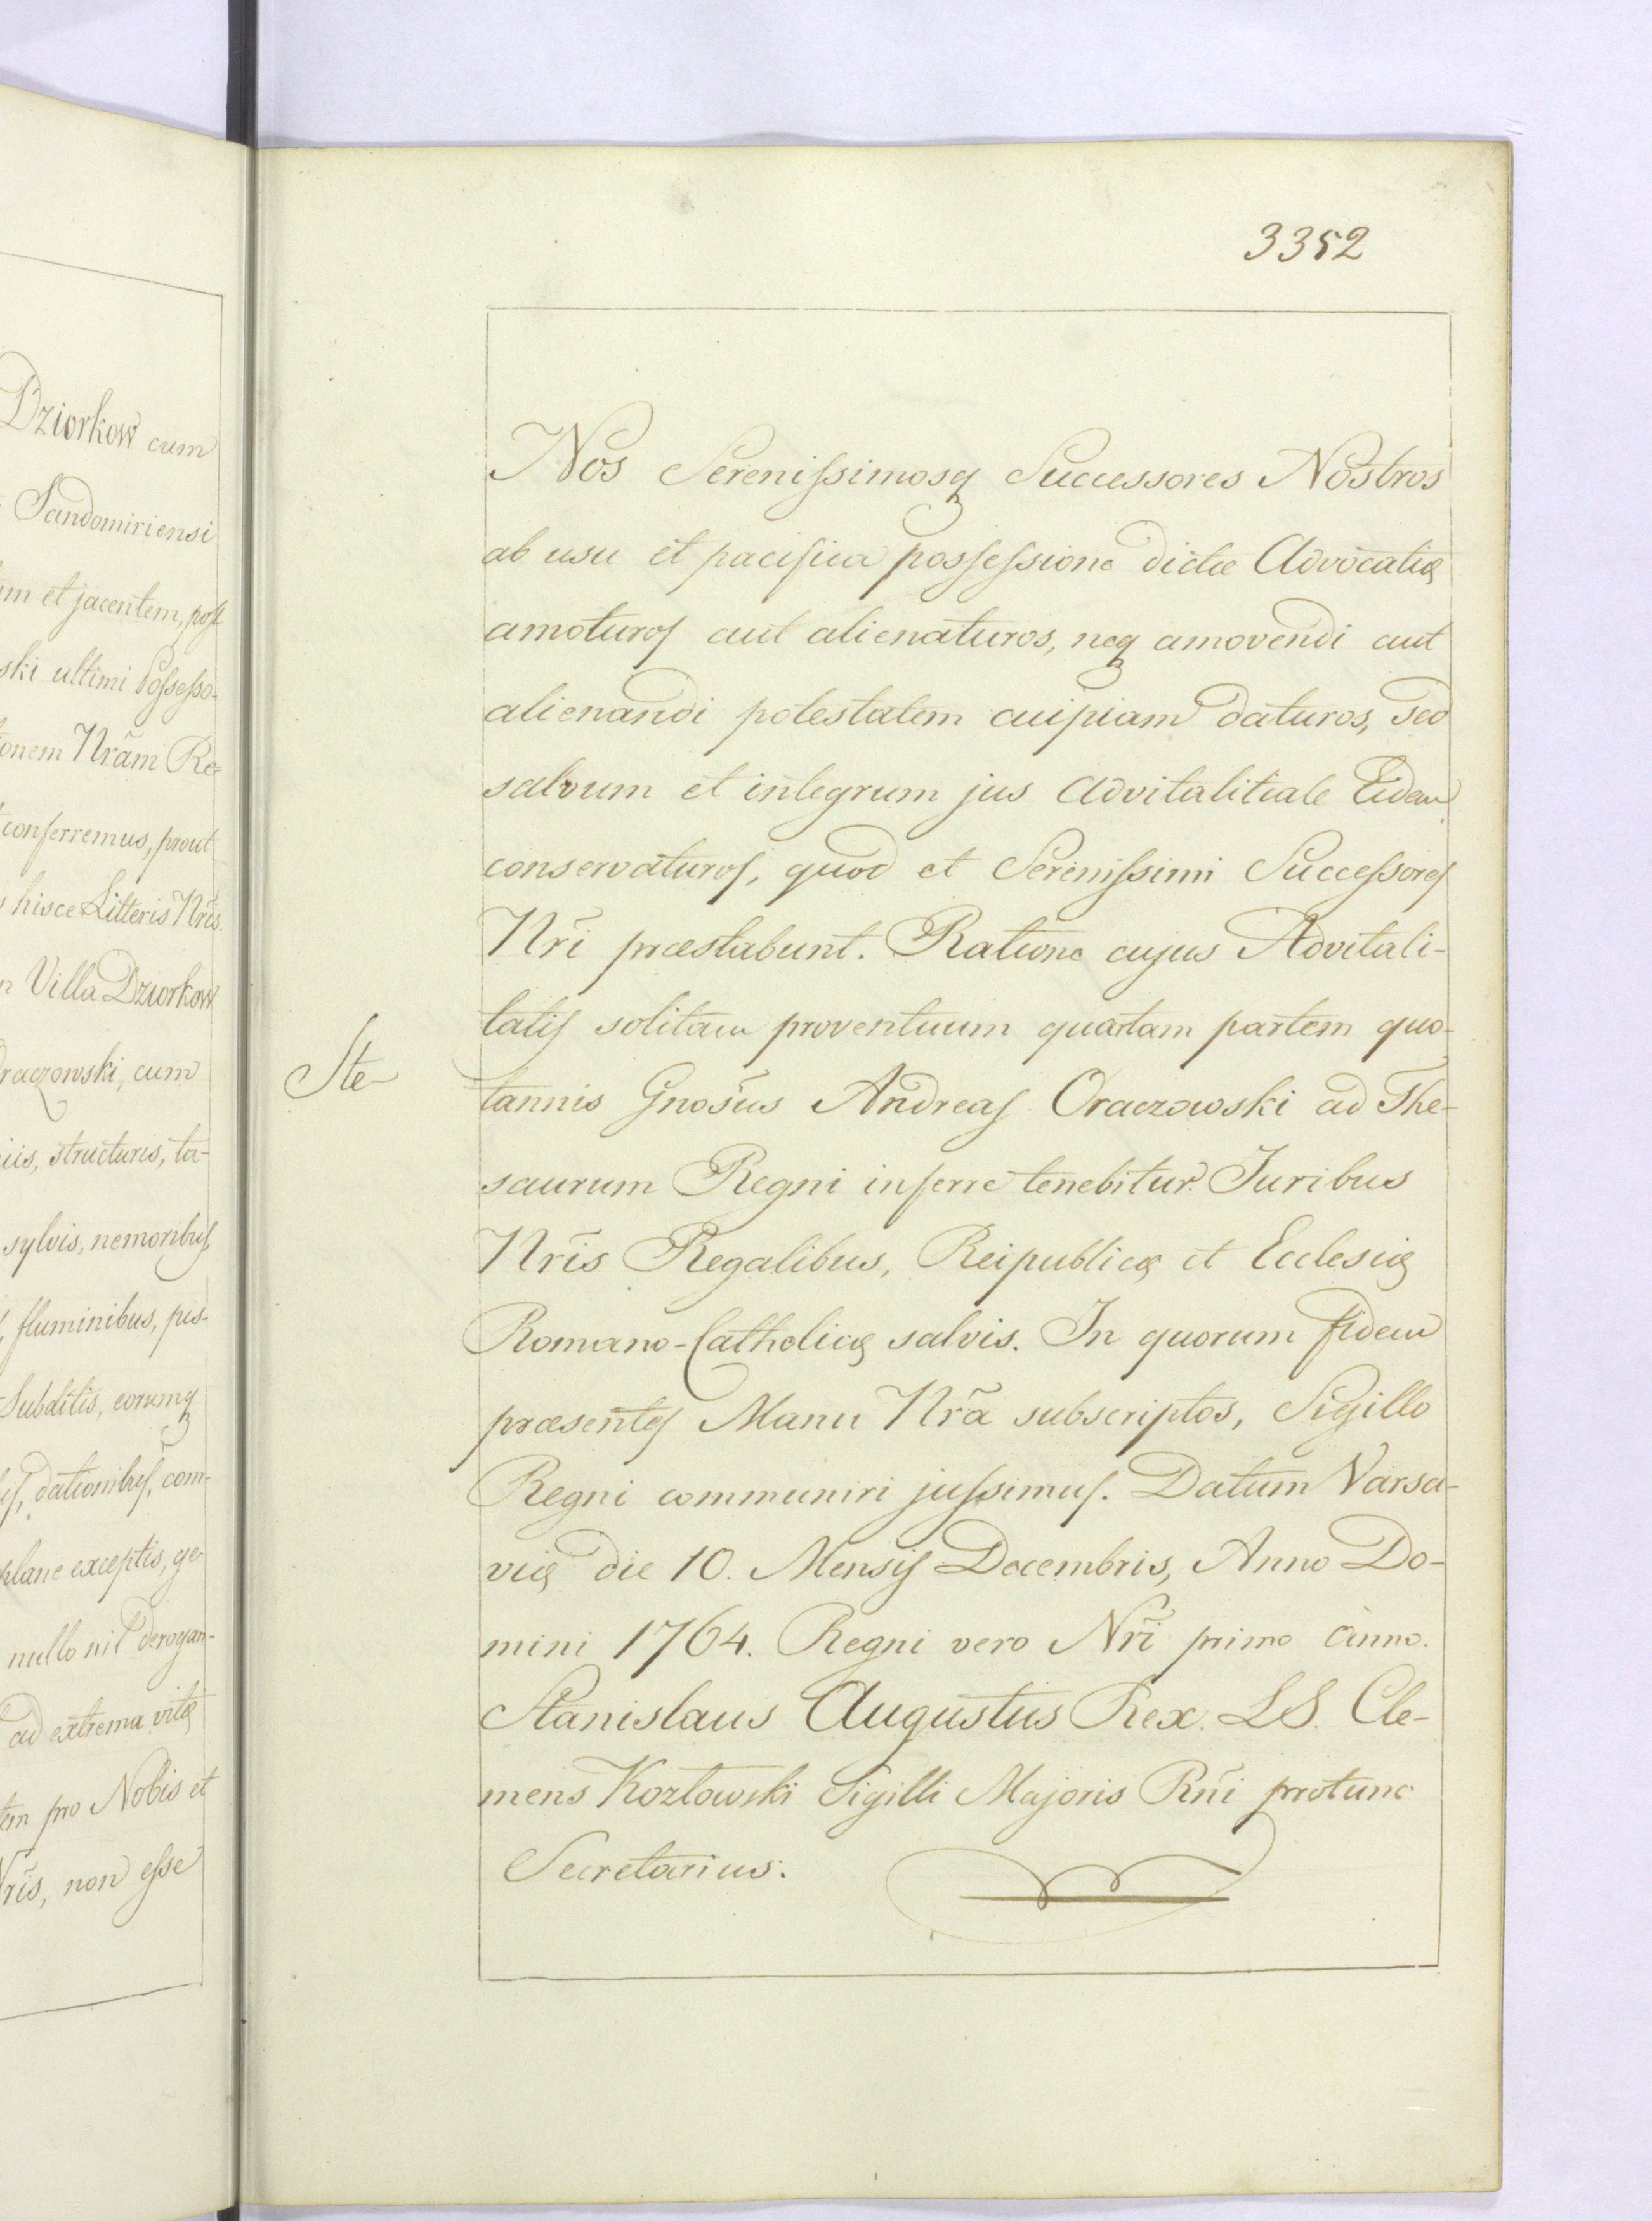 Dziorkow cum
Sandomiriensi
et jacentem, post
ski ultimi Possesso-
onem Nrãm Re-
conferremus, prout
hisce Litteris Nris.
Villa Dziorkow
raczowski, cum
iis, structuris, ta-
sylvis, nemoribus,
fluminibus, pis-
Subditis, eorumq
dationibus, com-
plane exceptis, ge-
nullo nil derogan-
ad extrema vitæ
pro Nobis et
non esse
3352
Nos Serenissimosq Successores Nostros
ab usu et pacifica possessione dictæ Advocatiæ
amoturos aut alienaturos, neq amovendi aut
alienandi potestatem cuipiam daturos, sed
salvum et integrum jus advitalitiale Eidem
conservaturos, quod et Serenissimi Successores
Nri præstabunt. Ratione cujus Advitali-
tatis solitam proventuum quartam partem quo-
Ste
tannis Gnosus Andreas Oraczowski ad The-
saurum Regni inferre tenebitur. Juribus
Nris Regalibus, Reipublicæ et Ecclesiæ
Romano-Catholicæ salvis. In quorum fidem
præsentes Manu Nrã subscriptos, Sigillo
Regni communiri jussimus. Datum Varsa-
viæ die 10. Mensis Decembris, Anno Do-
mini 1764. Regni vero Nri primo anno.
Stanislaus Augustus Rex. LS. Cle-
mens Kozłowski Sigilli Majoris Rni protunc
Secretarius.